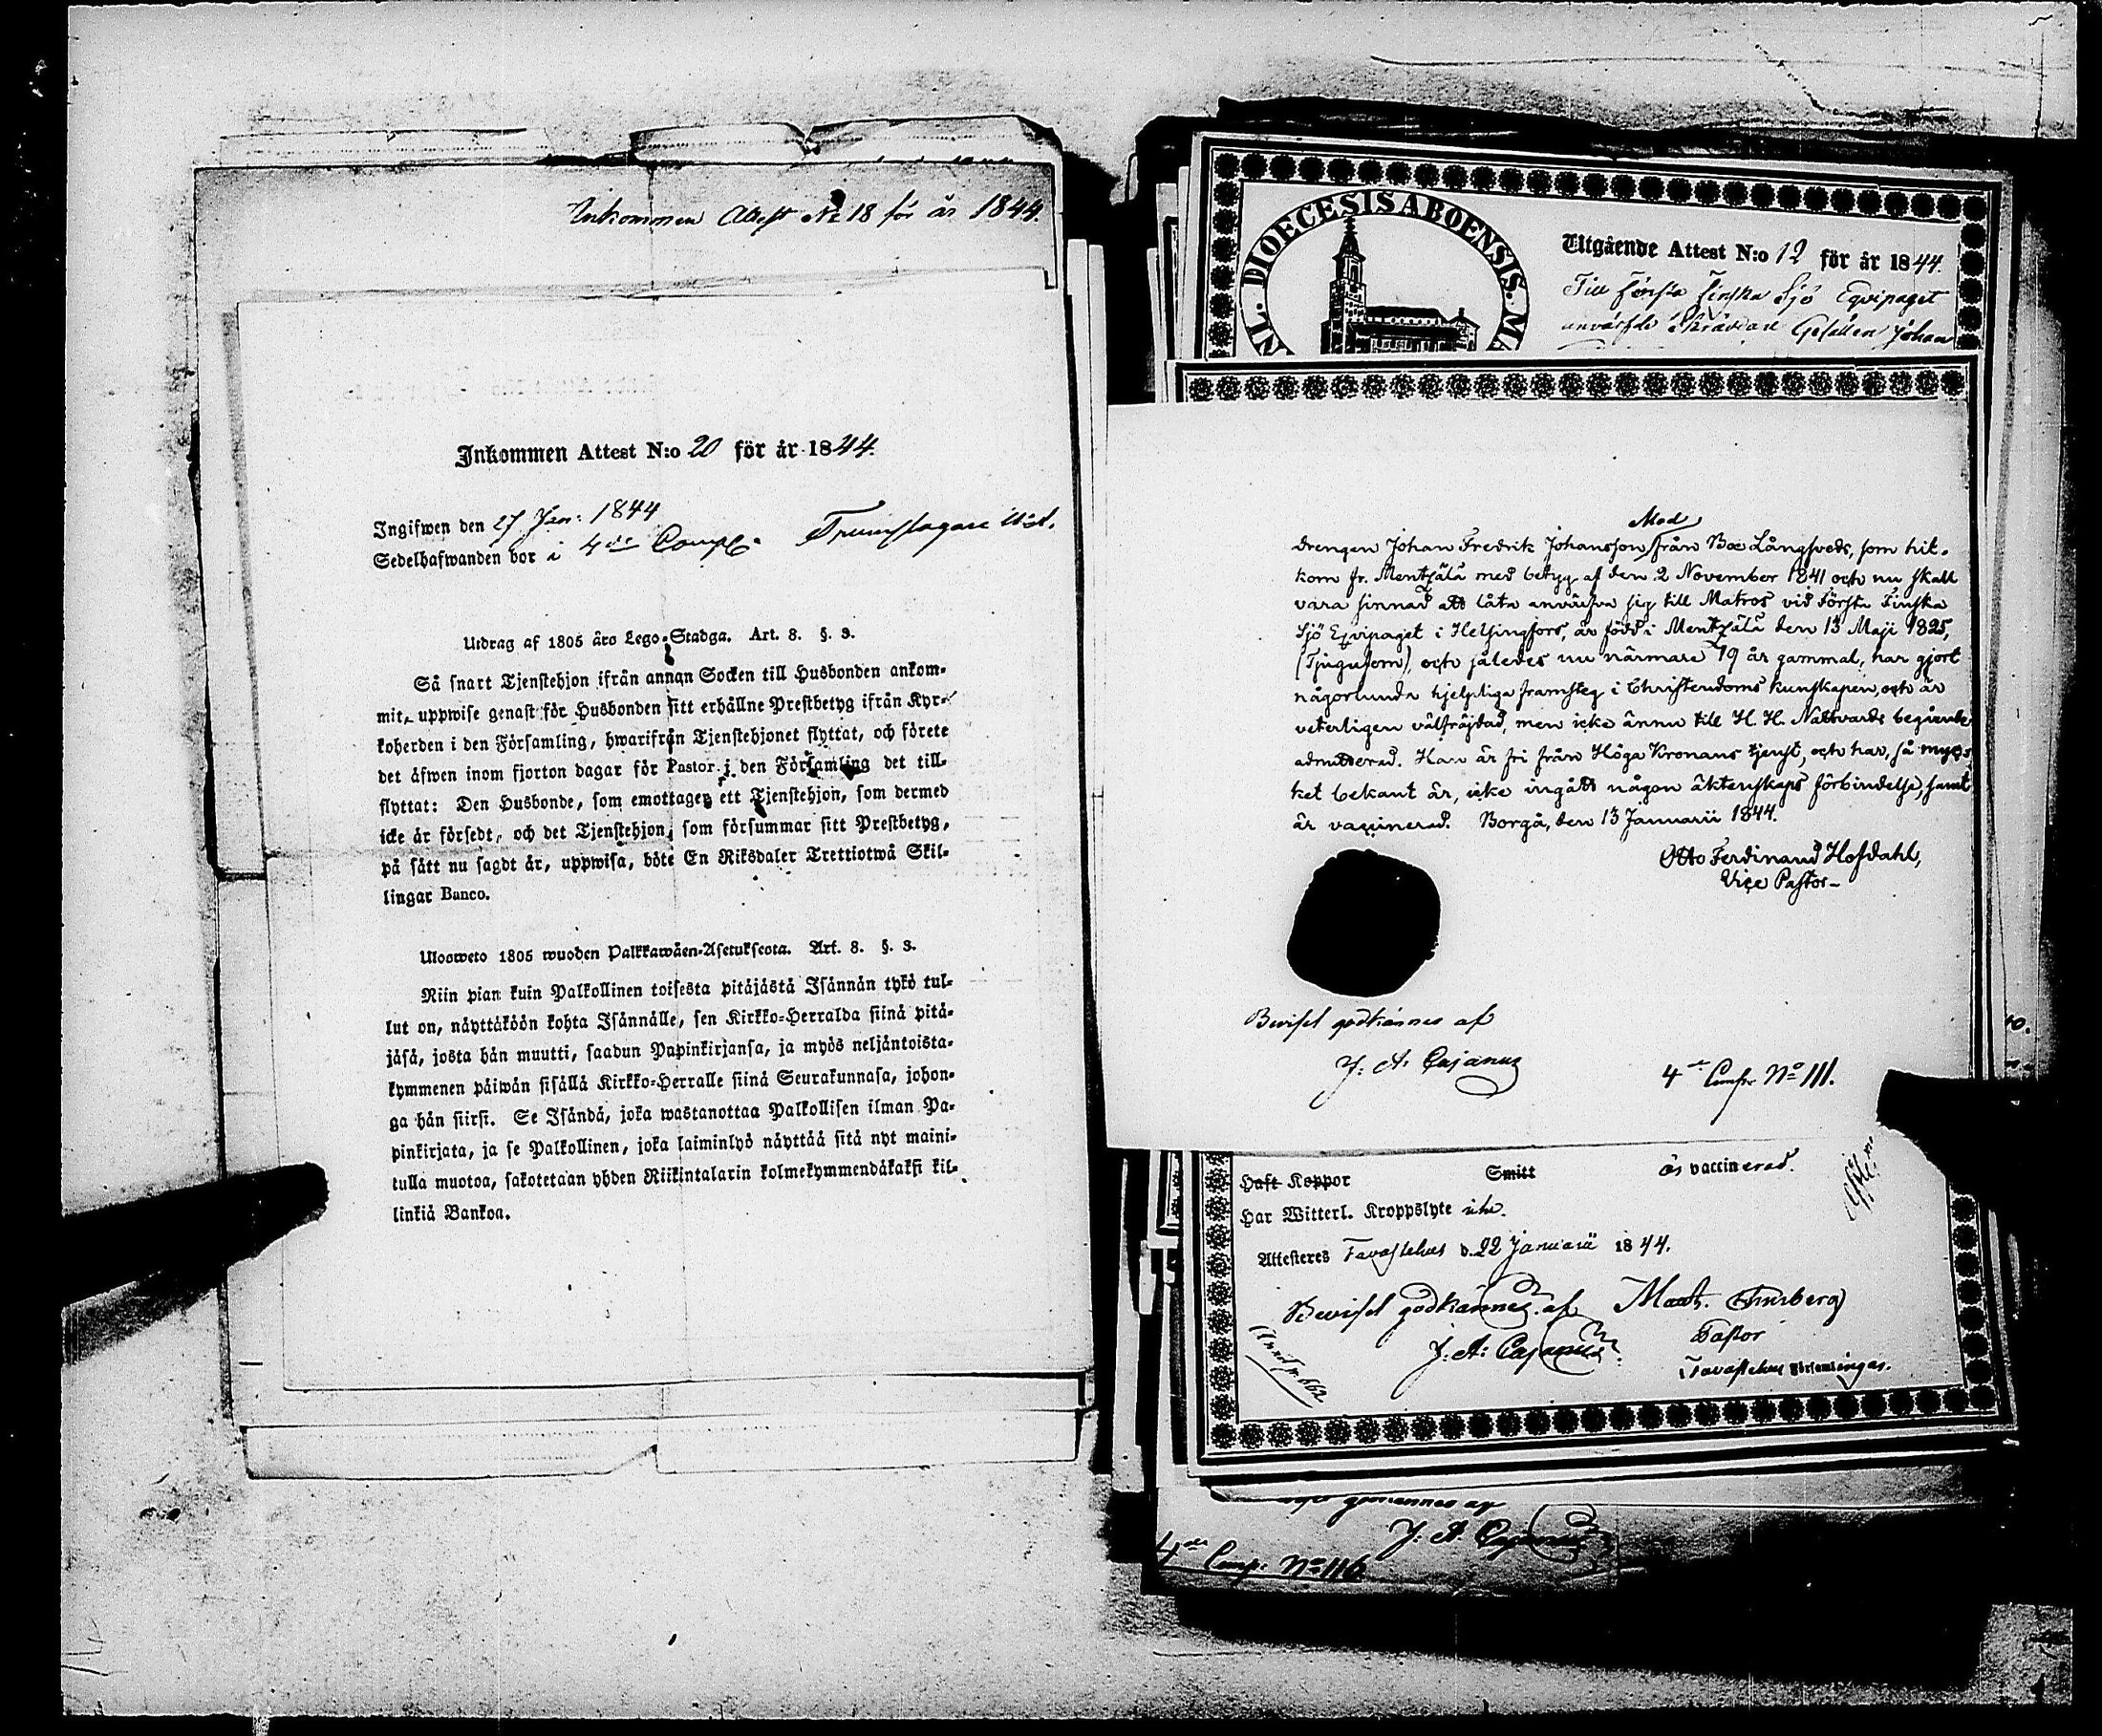 Inkommen Attest No 18 för år 1844.
Inkommen Attest N:o 20 för år 1844.
Ingifwen den 27 Jan: 1844
Sedelhafwanden bor i 4de Comp.
Utdrag af 1805 års Lego-Stadga. Art. 8. §. 3.
Så snart Tjenstehjon ifrån annan Socken till Husbonden ankom-
mit, uppwise genast för Husbonden sitt erhållne Prestbetyg ifrån Kyr-
koherden i den Församling, hwarifrån Tjenstehjonet flyttat, och förete
det äfwen inom fjorton dagar för Pastor i den Församling det till-
flyttat: Den Husbonde, som emottager ett Tjenstehjon, som dermed
icke är försedt, och det Tjenstehjon, som försummar sitt Prestbetyg,
på sätt nu sagdt är, uppwisa, böte En Riksdaler Trettiotwå Skil-
lingar Banco.
Ulosweto 1805 wuoden Palkkawäen-Asetuksesta. Art. 8. §. 3.
Niin pian kuin Palkollinen toisesta pitäjästä Isännän tykö tul-
lut on, näyttäköön kohta Isännälle, sen Kirkko-Herralda siinä pitä-
jäsä, josta hän muutti, saadun Papinkirjansa, ja myös neljäntoista-
kymmenen päiwän sisällä Kirkko-Herralle siinä Seurakunnasa, johon-
ga hän siirsi. Se Isändä, joka wastanottaa Palkollisen ilman Pa-
pinkirjata, ja se Palkollinen, joka laiminlyö näyttää sitä nyt maini-
tulla muotoa, sakotetaan yhden Riikintalarin kolmekymmendäkaksi kil-
linkiä Bankoa.
DIOECESIS ABOENSIS.
Utgående Attest N:o 12 för år 1844.
Till Första Finska Sjö Eqvipaget
anvärfde Skräddare Gesällen Johan
Mod
drengen Johan Fredrik Johansson från Boe Långsveds, som hit-
kom fr. Mentzälä med betyg af den 2 November 1841 och nu skall
vara sinnad att låta anvärfva sig till Matros vid Första Finska
Sjö Eqvipaget i Helsingfors, är född i Mentzälä den 13 Maji 1825,
(Tjugufem), och således nu närmare 19 år gammal, har gjort
någorlunda hjelpliga framsteg i Christendoms kunskapen, och är
veterligen välfräjdad, men icke ännu till H. H. Nattvards begående
admitterad. Han är fri från Höga Kronans tjenst, och har, så myc-
ket bekant är, icke ingått någon äktenskaps förbindelse, samt
är vaccinerad. Borgå, den 13 Januarii 1844.
Otto Ferdinand Hofdahl,
Vice Pastor
Beviset godkännes af
J. A. Cajanus
4de Comp. No 111.
Haft Koppor Smitt är vaccinerad.
Har Witterl. Kroppslyte icke.
Attesteres Tavastehus d. 22 Januarii 1844.
Beviset godkännes af
J. A. Cajanus
Pastor
Tavastehus Församlingar.
J. A. Cajanus
4de Comp. No 116